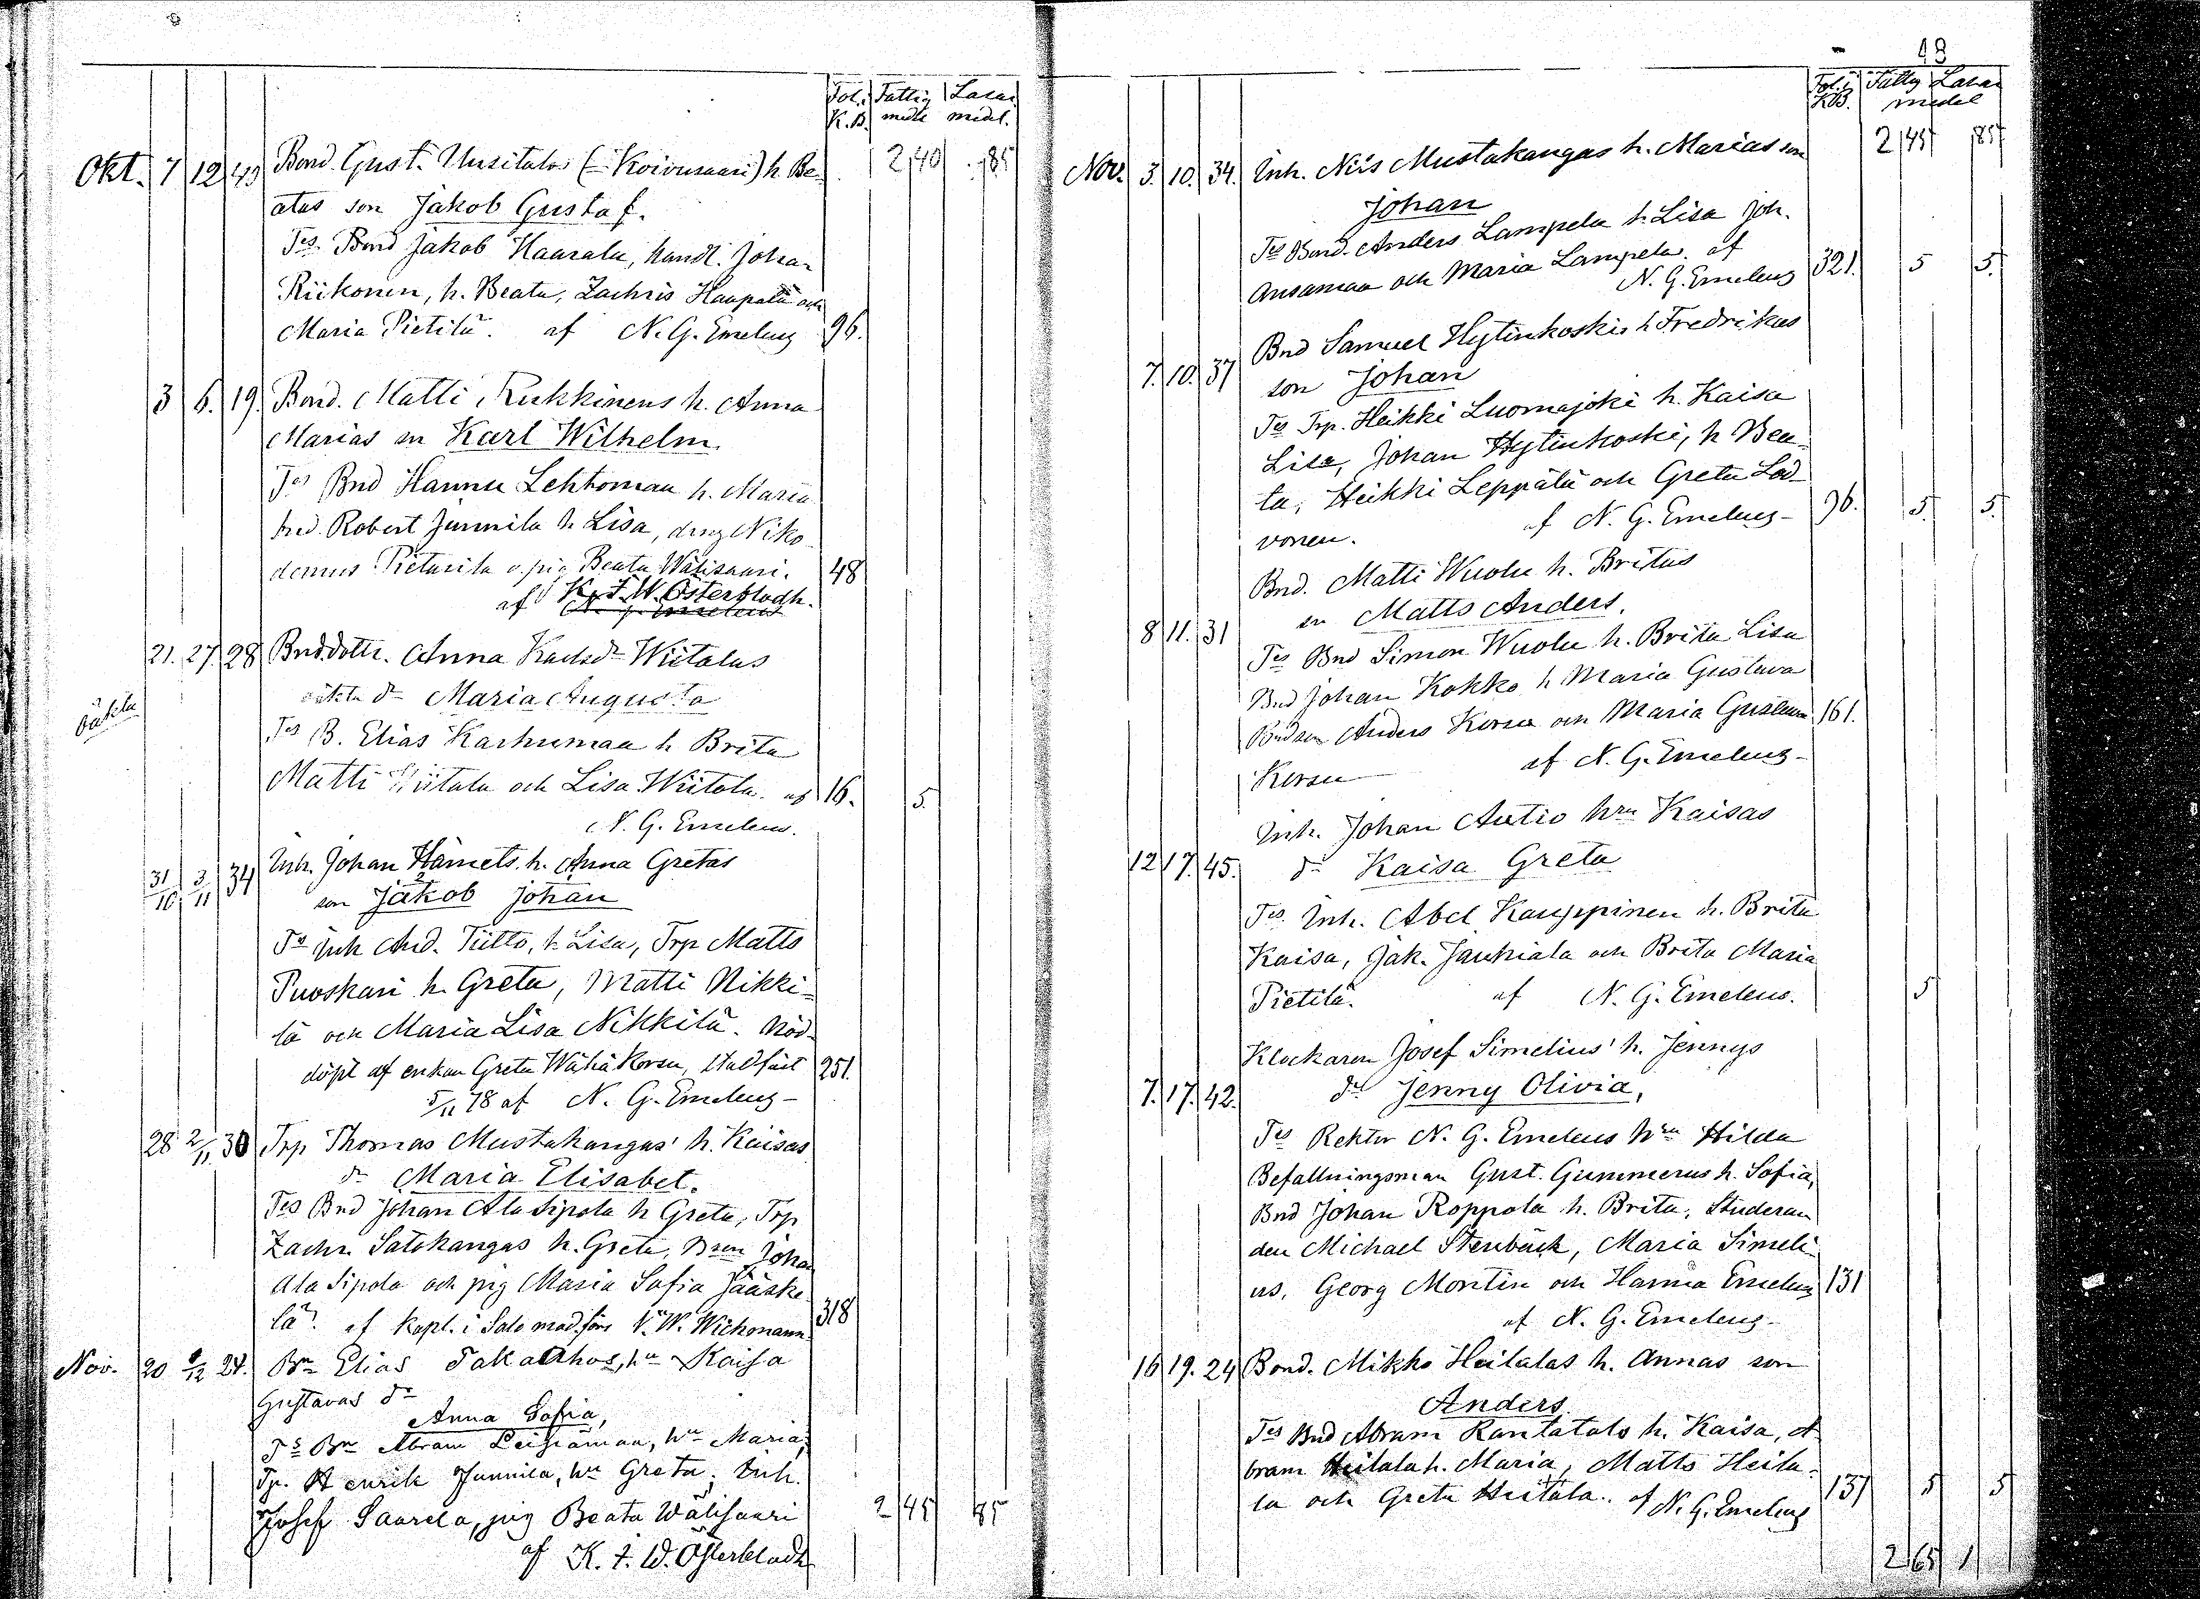 Fol. i Fattig Lasar.
K.B. medel medel.
2 40 85
Okt. 7 12 49 Bond. Gust. Uusitalos (= Koivusaari) h. Be-
atas son Jakob Gustaf.
Tes. Bond Jakob Haarala, handl. Johan
Riikonen, h. Beata, Zachris Haapala och
Maria Pietilä. af N. G. Emeleus 96.
3 6. 19. Bond. Matti Kukkinens h. Anna
Marias sn Karl Wilhelm.
Tes Bnd Hannu Lehtomaa h. Maria
Robert Junnila h Lisa, dreng Niko-
demus Pietarila o. pig Beata Wälisaari. 48
af K. F. W. Österbladh.
N. G. Emeleus
21. 27. 28 Bnd.dottr. Anna Karlsdr Wiitalas
oäkta
oäkta dr Maria Augusta
Tes B. Elias Karhumaa h Brita
Matti Wiitala och Lisa Wiitola. af 16. 5.
N. G. Emeleus.
31/10 3/11 34 Inh. Johan Hämets h. Anna Gretas
son Jakob Johan
Ts Inh And. Tiitto, h. Lisa, Trp Matts
Puoskari h. Greta, Matti Nikki-
lä och Maria Lisa Nikkilä. Nöd-
döpt af enkan Greta Wähä Korsu, stadfäst 251.
5/11 78 af N. G. Emeleus -
28 2/11 30 Trp Thomas Mustakangas' h. Kaisas
dr Maria Elisabet.
Tes Bnd Johan Ala Sipola h Greta, Trp
Zachr. Salokangas h. Greta, Bson Johan
Ala Sipola och pig Maria Sofia Jääske-
lä. af kapl. i Salo mad.förs. V. W. Wichmann 318
Nov. 20 1/12 24. Bn Elias Takaahos, hu Kaisa
Gustavas dr
Anna Sofia,
Ts Bn Abram Leiviämaa, hu Maria,
Tp. Henrik Junnila, hu Greta, Inh.
Josef Saarela, pig Beata Wälisaari 2 45 85
af K. F. W. Österbladh
48
Fol. i Fattig Lasar.
KB. medel
2 45 85
Nov. 3. 10. 34. Inh. Nils Mustakangas h. Marias son
Johan
Ts Bond. Anders Lampela h. Lisa Joh.
Ansamaa och Maria Lampela. af 321. 5 5.
N. G. Emeleus
7. 10. 37 Bnd Samuel Hytinkoskis h Fredrikas
son Johan
Ts Trp. Heikki Luomajoki h. Kaisa
Lisa, Johan Hytinkoski, h Bea-
ta, Heikki Leppälä och Greta Lod-
vonen. af N. G. Emeleus - 96. 5. 5.
Bnd. Matti Wuolu h. Britas
8 11. 31 sn Matts Anders.
Tes Bnd Simon Wuolu h. Brita Lisa
Bnd Johan Kokko h Maria Gustava
Bndson Anders Korsu och Maria Gustava 161.
Korsu af N. G. Emeleus -
Inh. Johan Autio hru Kaisas
12 17. 45. dr Kaisa Greta
Tes. Inh. Abel Kauppinen h. Brita
Kaisa, Jak. Jauhiala och Brita Maria
Pietilä. af N. G. Emeleus. 5
Klockaren Josef Simelius' h. Jennys
7. 17. 42. dr Jenny Olivia,
Tes Rektor N. G. Emeleus hru Hilda
Befallningsman Gust. Gummerus h. Sofia,
Bnd Johan Roppola h. Brita, Studeran-
den Michael Stenbäck, Maria Simeli-
us, Georg Montin och Hanna Emeleus 131
af N. G. Emeleus -
16 19. 24 Bond. Mikko Heilalas h. Annas son
Anders.
Tes Bnd Abram Rantatalo h. Kaisa, A-
bram Heilala h. Maria, Matts Heila-
la och Greta Heilala. af N. G. Emeleus 137 5 5
2 65 1